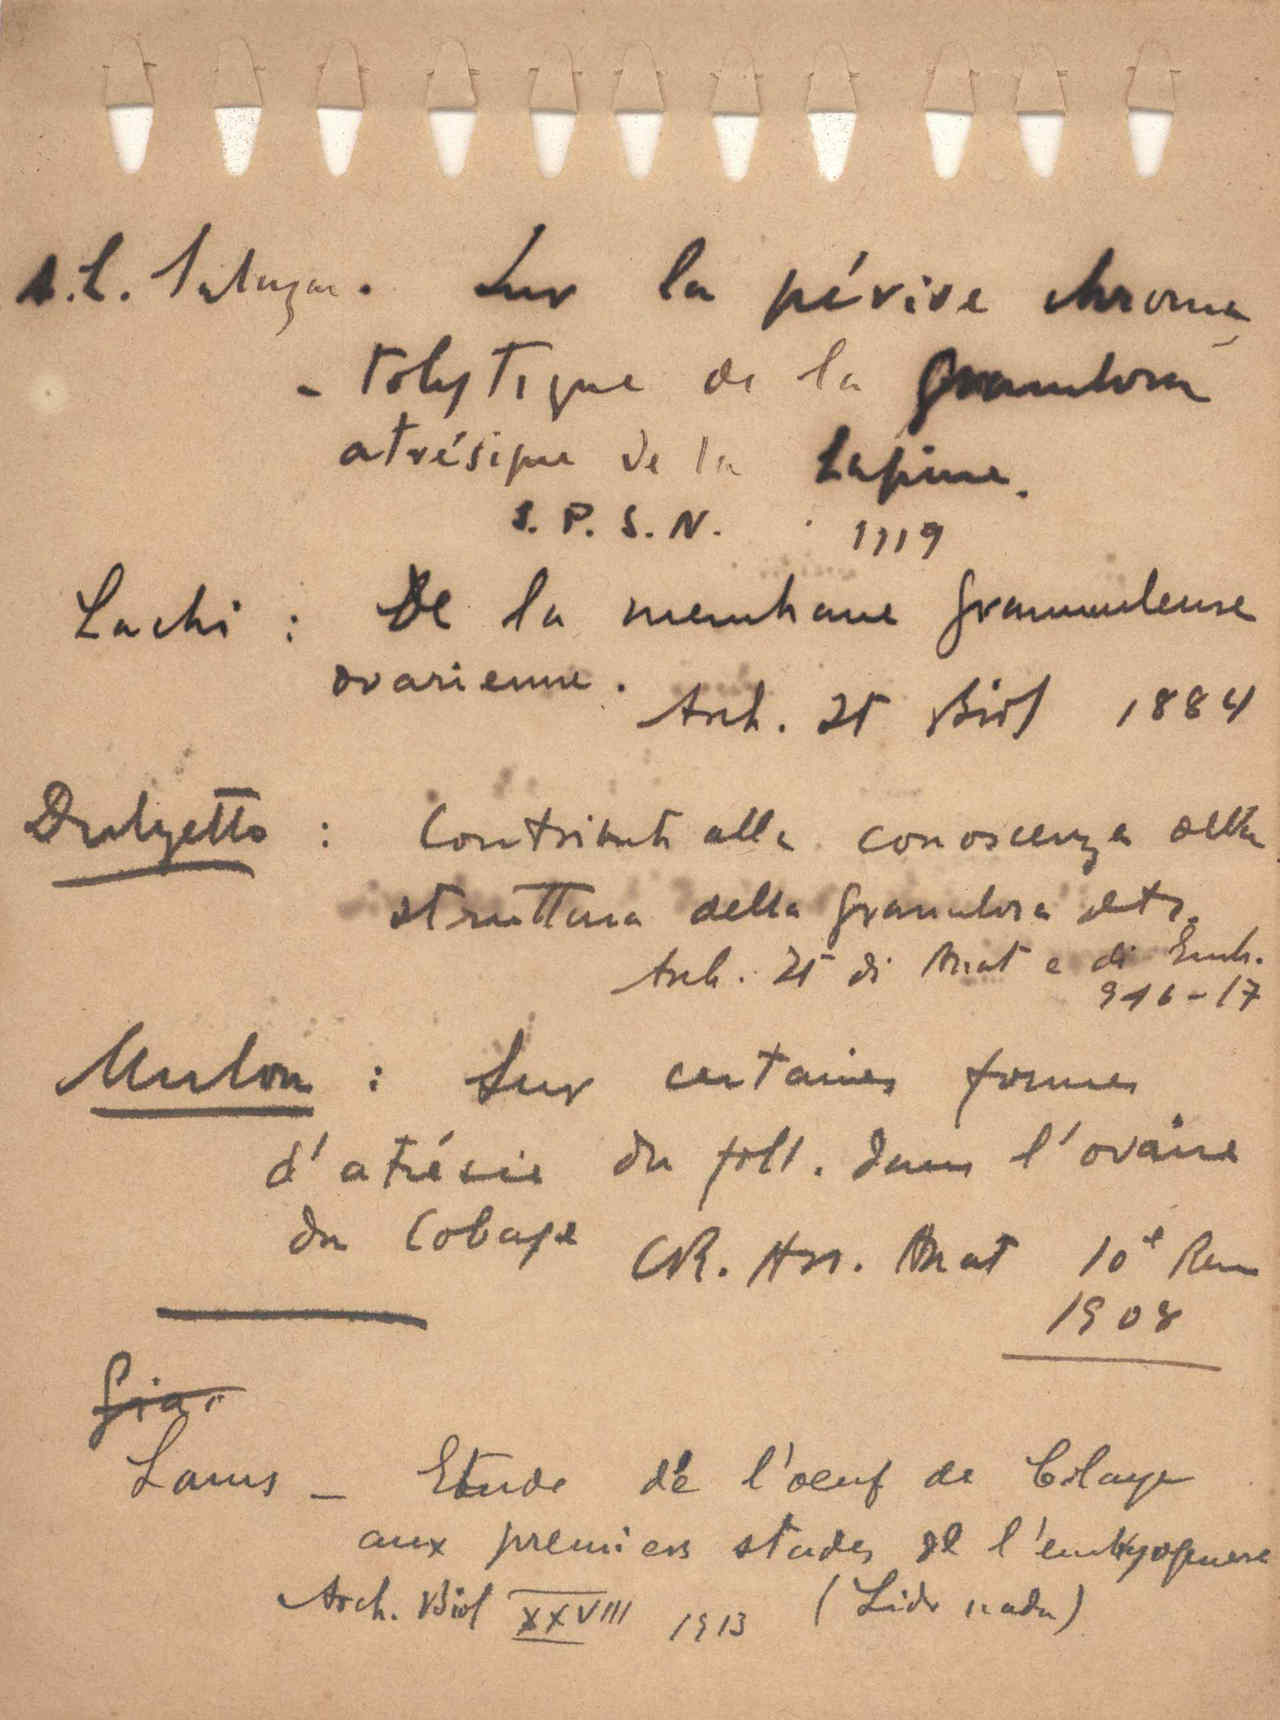 A. L. Salazar. Sur la périve chroma
- tolytique de la granulosa
atrésique de la Lapine.
S. P. S. N. 1919
Lachi : De la membrane granuleuse
ovarienne.
Arch. It Biol 1884
: Contributi alla conoscenza della
struttura della granulosa
Arch. It di Anat e di Emb.
916-17
Mulon : Sur certaines formes
d'atrésie du foll. dans l'ovaire
du Cobaye
CR. Ass. Anat 10e Reun
1908
Lams - Etude de l'oeuf de Cobaye
aux premiers stades de l'embryogenese
Arch. Biol XXVIII 1913 (Lido nada)